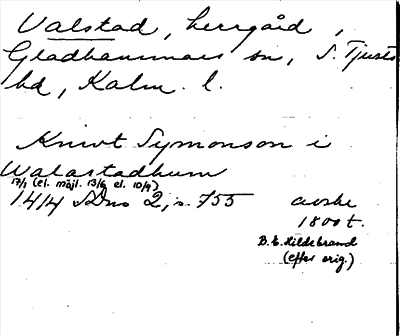 Valstad, herrgård,
Gladhammars sn, S. Tjusts
hd, Kalm. l.
Knwt Symonson i
Walastadhum
17/1 (el. möjl. 13/6 el. 10/9)
1414 SDns 2, s. 755 avskr
1800 t.
B. E. Hildebrand
(efter orig.)